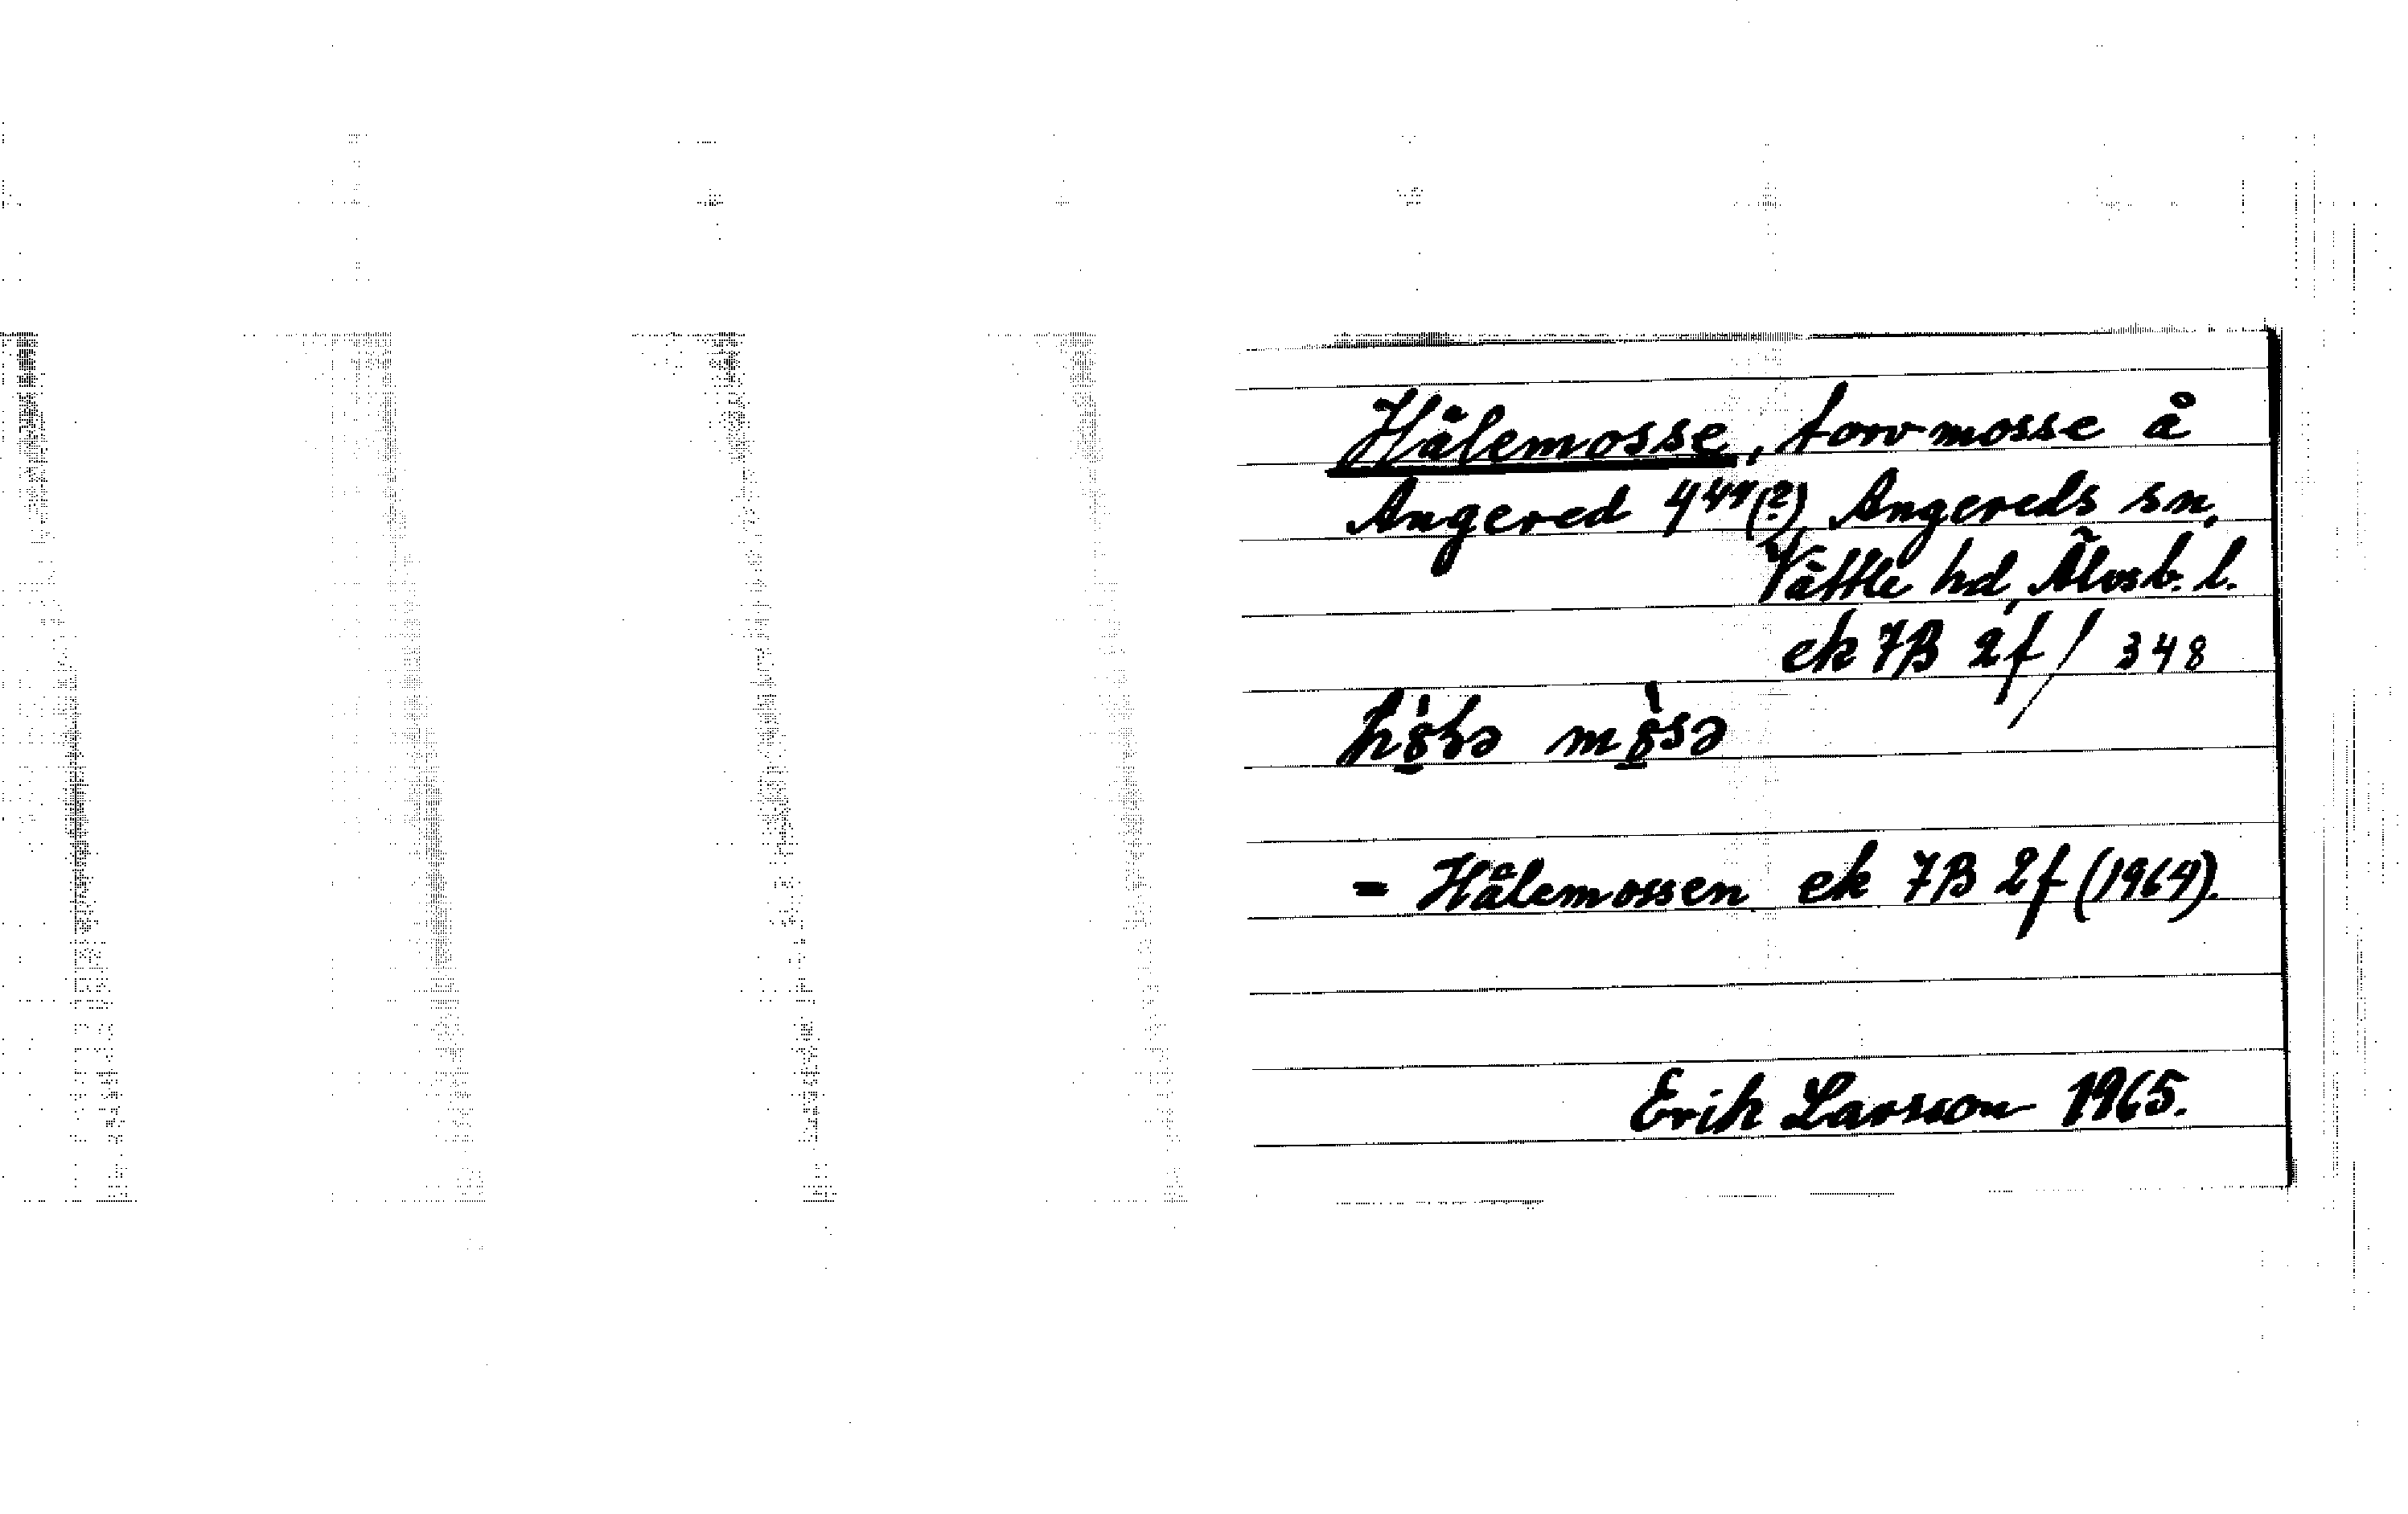 Hålemosse, torvmosse å
Angered 4⁴⁴(?), Angereds sn,
Vättle hd, Älvsb. l.
ek 7B 2f / 348
= Hålemossen ek 7B 2f (1964).
Erik Larsson 1965.